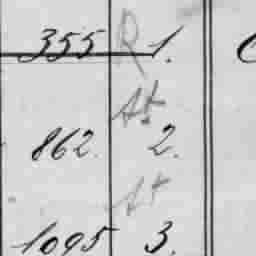 355 R 1.
At
862. 2.
At
1095 3.